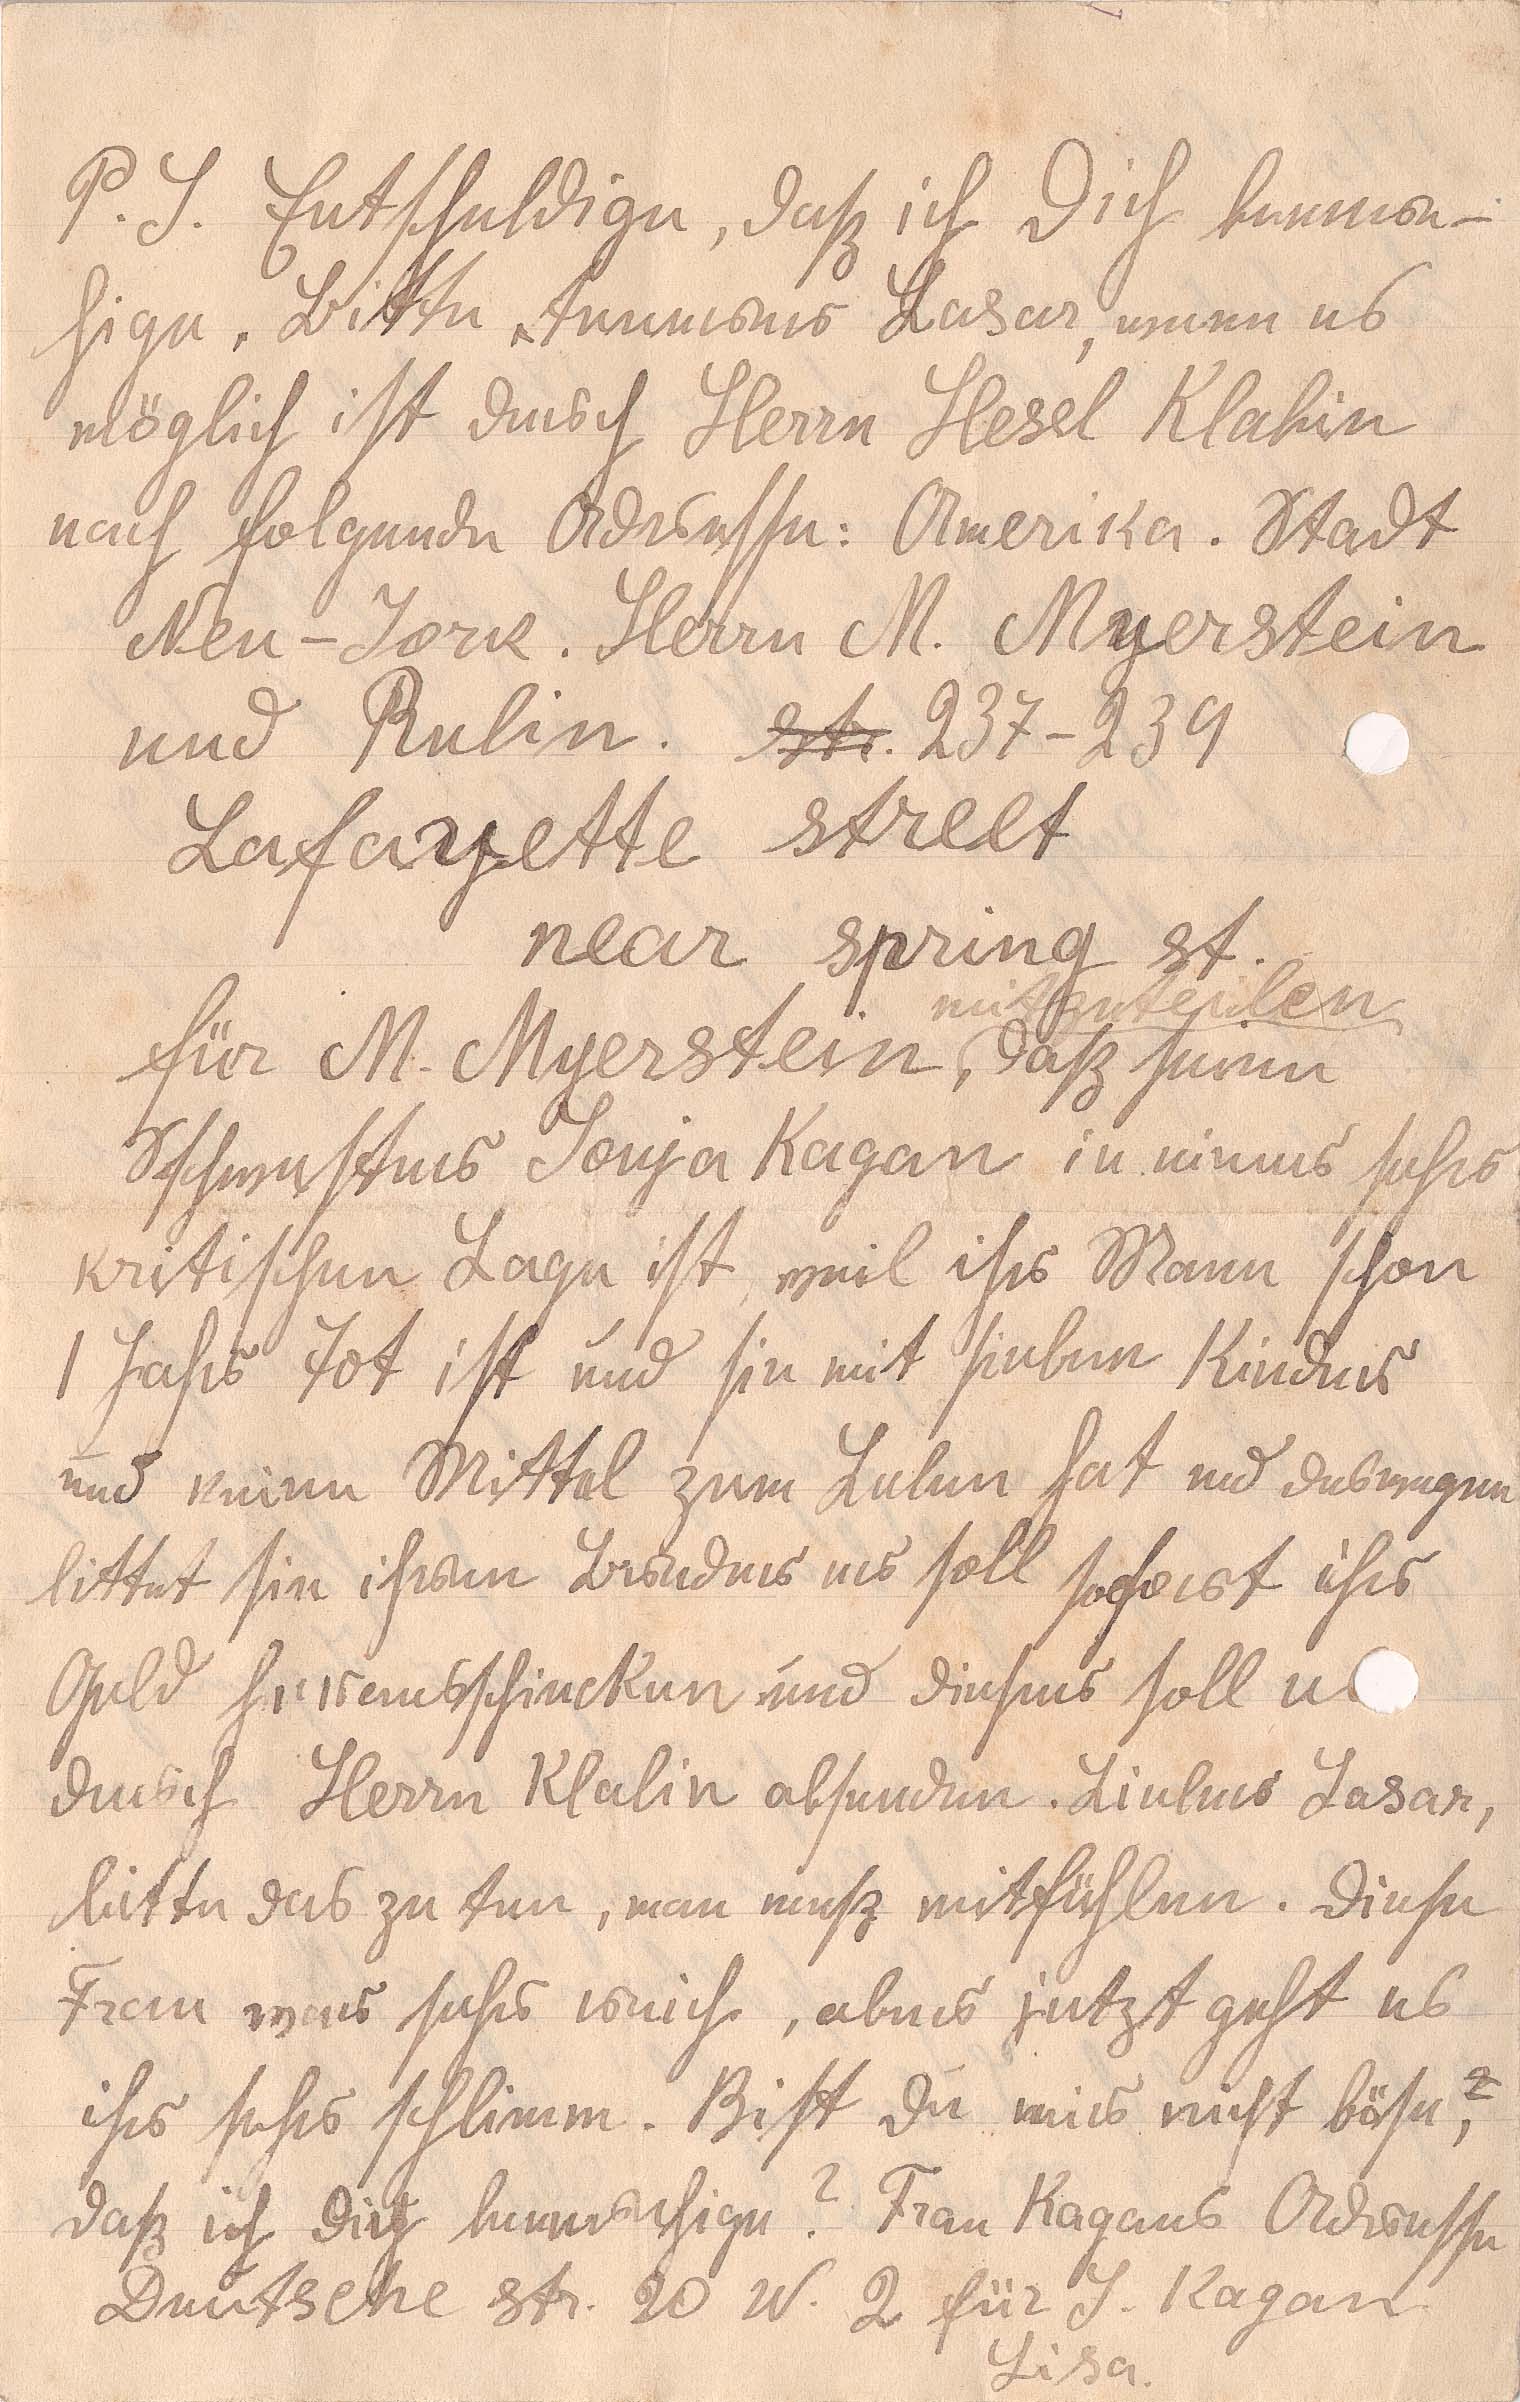 P. S. Entschuldige, daß ich Dich beunru-
hige. Bitte, teuerer Lasar, wenn es
möglich ist durch Herrn Hesel Klabin
nach folgende Adresse: Amerika. Stadt
Neu-Jork. Herrn M. Myerstein
und Rubin. str. 237-239
Lafayette street
near spring st.
mitzuteilen
für M. Myerstein, daß seine
Schwester Sonja Kagan in einer sehr
kritischen Lage ist, weil ihr Mann schon
1 Jahr tot ist und sie mit sieben Kinder
und keine Mittel zum Leben hat und deswegen
bittet sie ihren Bruder er soll sofort ihr
Geld herausschiecken und dieses soll er
durch Herrn Klabin absenden. Lieber Lasar,
bitte das zu tun, man muß mitfühlen. Diese
Frau war sehr reich, aber jetzt geht es
ihr sehr schlimm. Bist du mir nicht böse,
daß ich dich beunruhige? Frau Kagans Adresse
Deutsche str. 20 W. 2 für S. Kagan
Lisa.